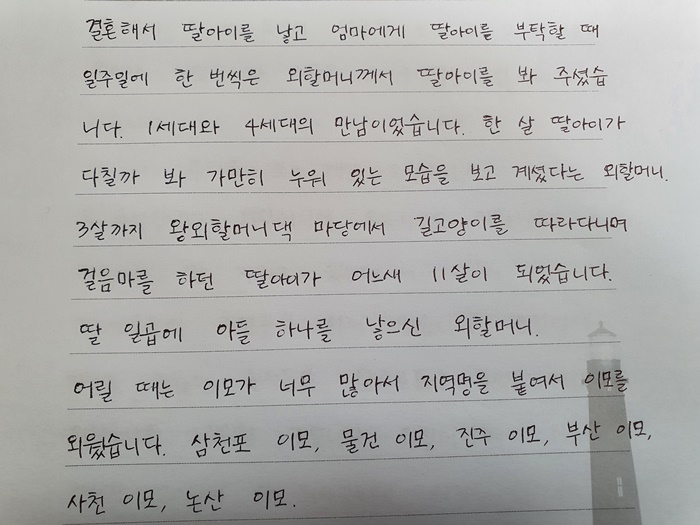 결혼해서 딸아이를 낳고 엄마에게 딸아이를 부탁할 때
일주일에 한 번씩은 외할머니께서 딸아이를 봐 주셨습
니다. 1세대와 4세대의 만남이었습니다. 한 살 딸아이가
다칠까 봐 가만히 누워 있는 모습을 보고 계셨다는 외할머니.
3살까지 왕외할머니댁 마당에서 길고양이를 따라다니며
걸음마를 하던 딸아이가 어느새 11살이 되었습니다.
딸 일곱에 아들 하나를 낳으신 외할머니.
어릴 때는 이모가 너무 많아서 지역명을 붙여서 이모를
외웠습니다. 삼천포 이모, 물건 이모, 진주 이모, 부산 이모,
사천 이모, 논산 이모.